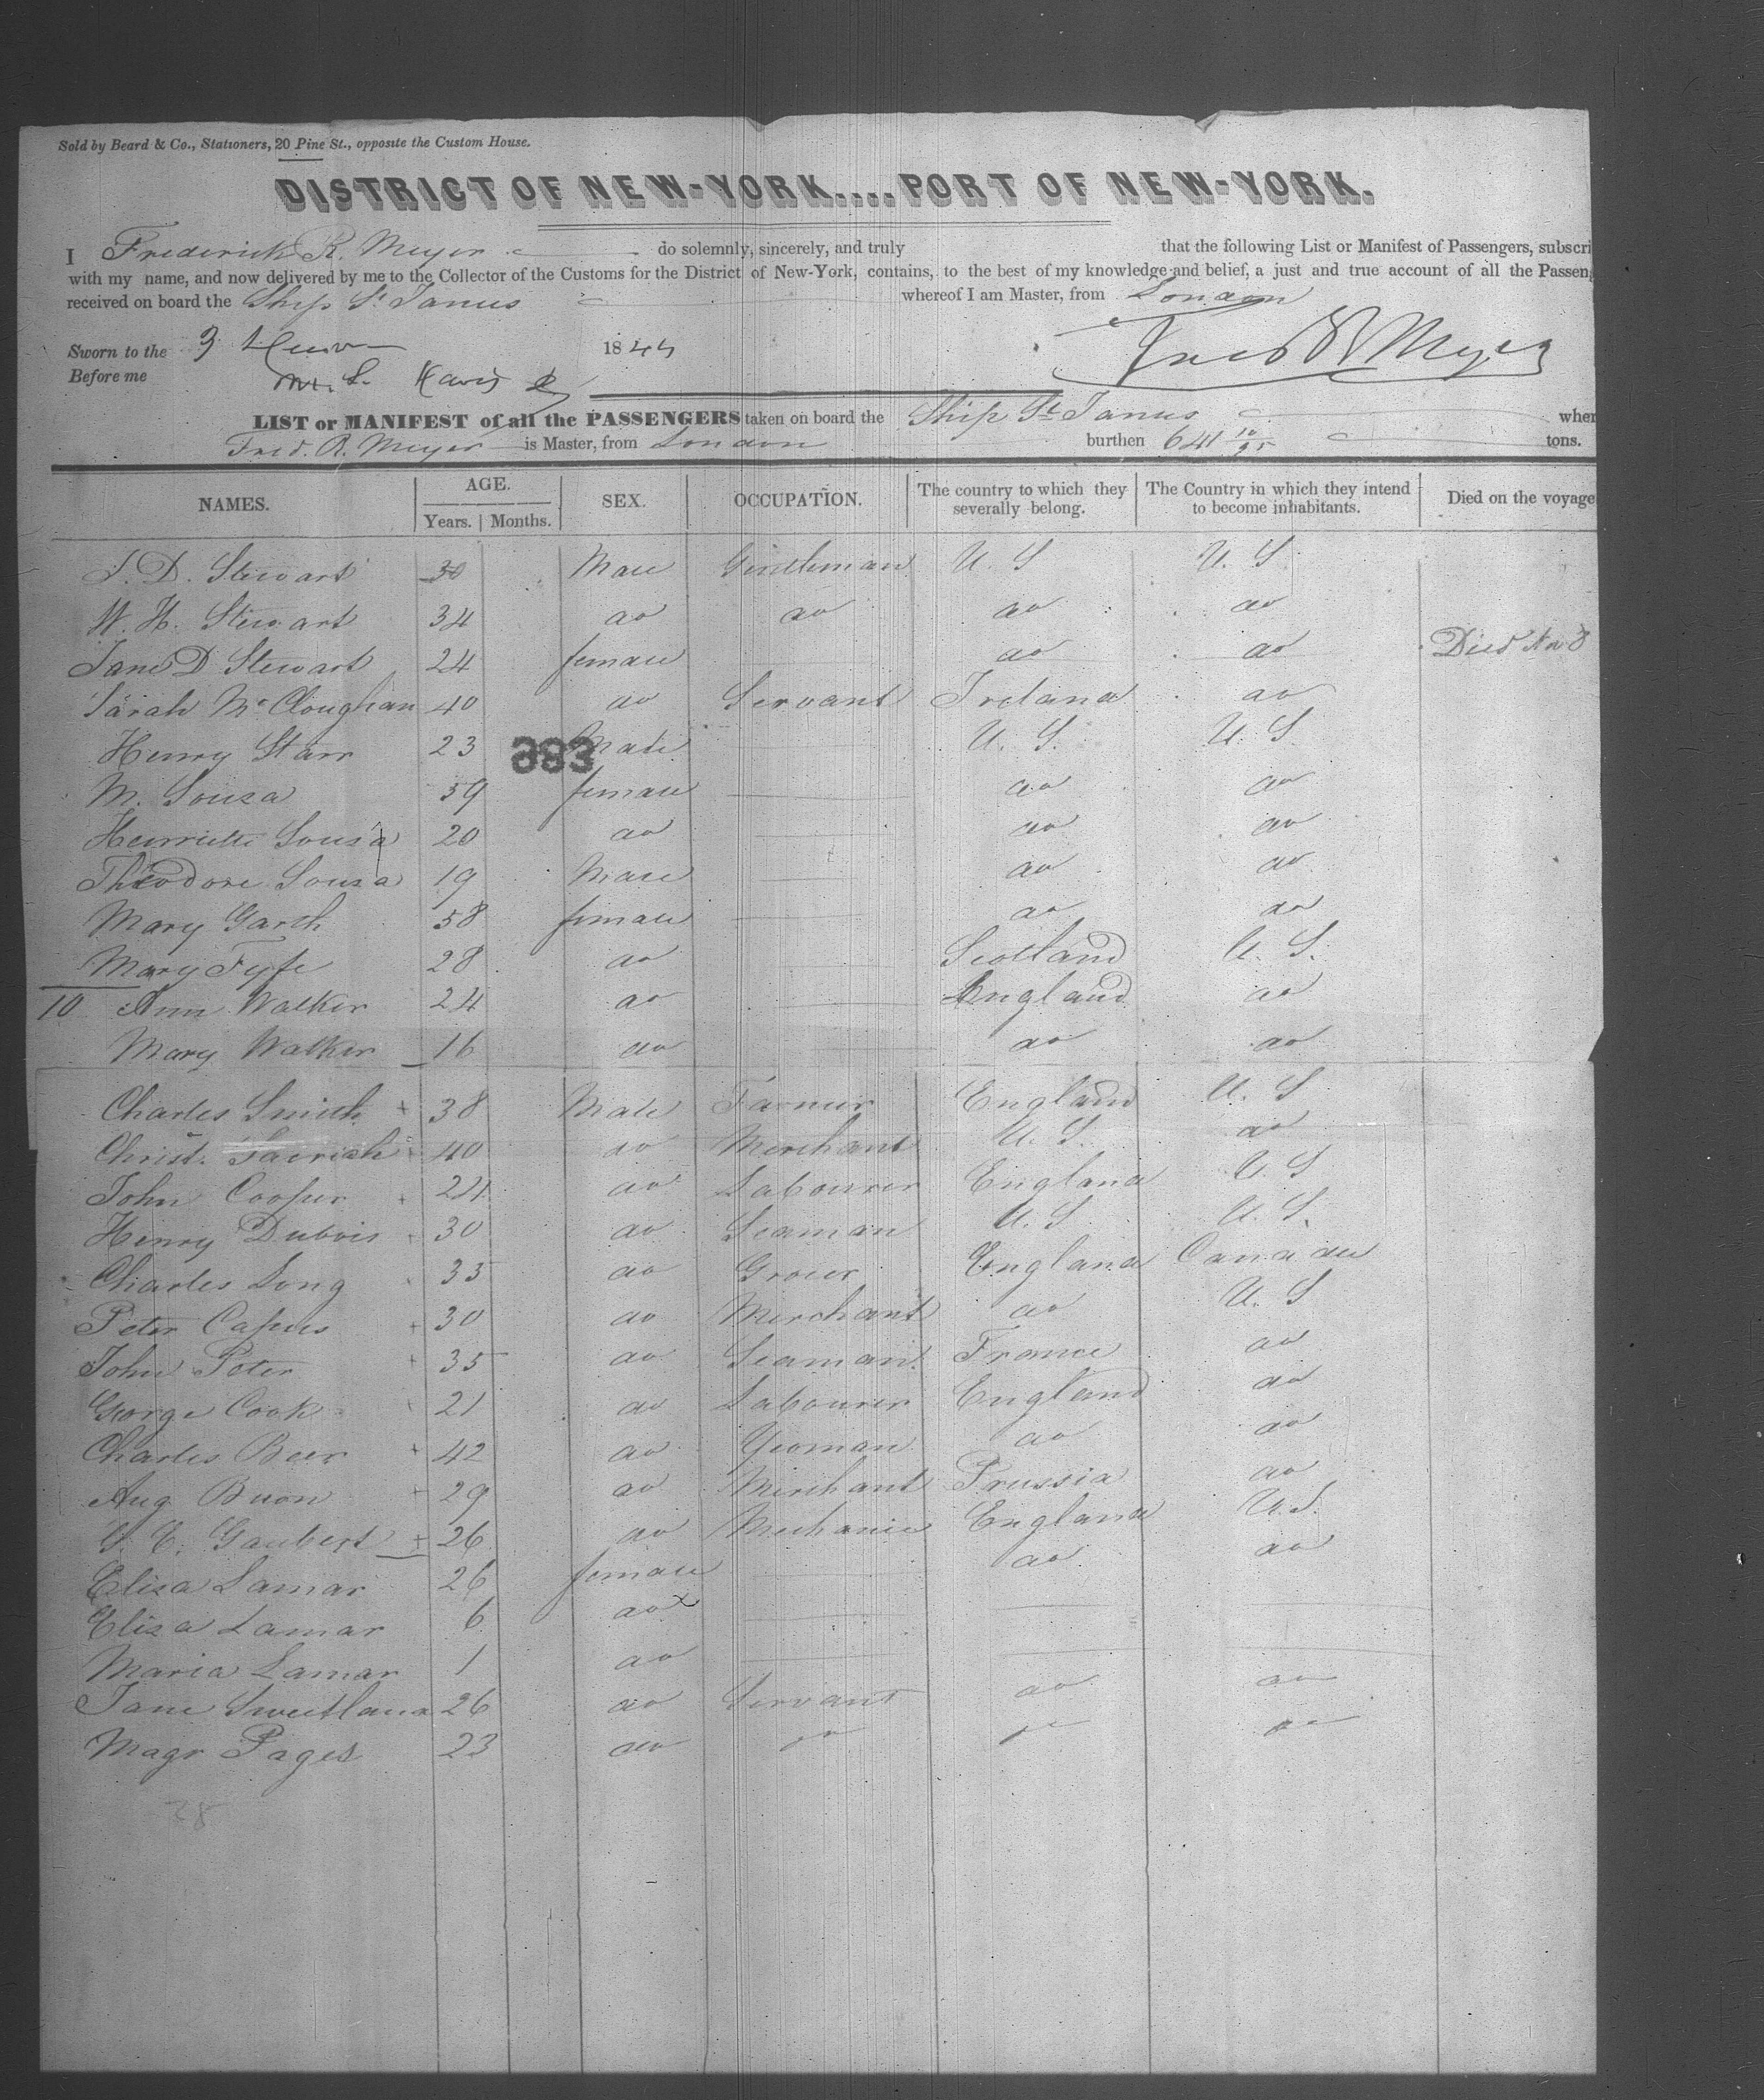 Sold by Beard & Co., Stationers, 20 Pine St., opposite the Custom House.
DISTRICT OF NEW-YORK....PORT OF NEW-YORK.
I Frederick R. Meyer do solemnly, sincerely, and truly that the following List or Manifest of Passengers, subscri
with my name, and now delivered by me to the Collector of the Customs for the District of New-York, contains, to the best of my knowledge and belief, a just and true account of all the Passen
received on board the Ship St James whereof I am Master, from London
Sworn to the 3 1844
Before me
Fred R Meyer
LIST or MANIFEST of all the PASSENGERS taken on board the Ship St James wher
Fred. R. Meyer is Master, from London burthen 641 10/95 tons.
NAMES. AGE. Years. Months. SEX. OCCUPATION. The country to which they severally belong. The Country in which they intend to become inhabitants. Died on the voyage
J. D. Stewart 30 Male Gentleman U. S U. S
W. H. Stewart 34 do do do do
Jane D Stewart 24 female do do Died
Sarah McCloughan 40 do Servant Ireland do
Henry Starr 23 Male U. S. U. S
983
M. Souza 59 female do do
Henriette Souza 20 do do do
Theodore Souza 19 Male do do
Mary Garsh 58 female do do
Mary Fyfe 28 do Scotland U. S.
10 Ann Walker 24 do England do
Mary Walker 16 do do do
Charles Smith + 38 Male Farmer England U. S
Christ. 40 do Merchant U. S. do
John Cooper 21 do Labourer England U. S
Henry Dubois 30 do Seaman U. S U. S.
Charles Long 35 do Grocer England Canada
Peter + 30 do Merchant do U. S
John Peter + 35 do Seaman France do
George Cook 21 do Labourer England do
Charles Beer + 42 do Yeoman do do
Aug Buon + 29 do Merchant Prussia do
Gaubert + 26 do Mechanic England U.S.
Eliza Lamar 26 female do do
Eliza Lamar 6 do
Maria Lamar 1 do
Jane Sweetland 26 do Servant do do
Magr Pages 23 do
28